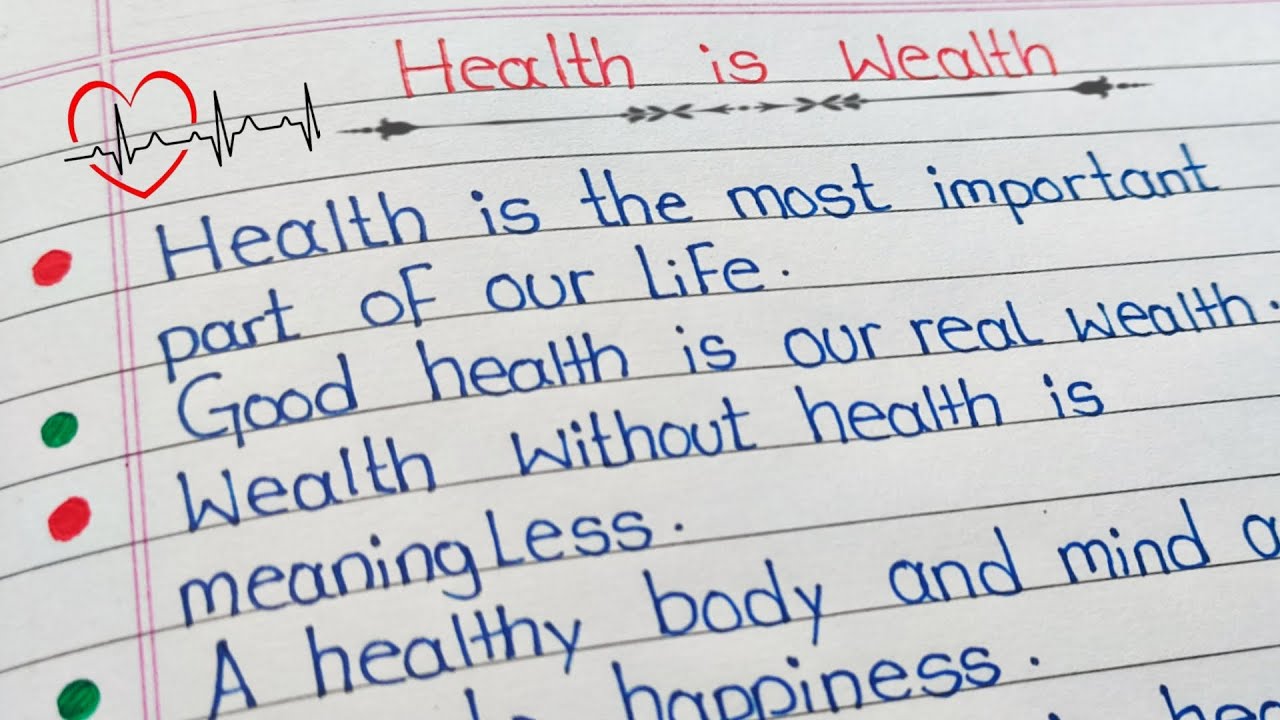 Health is Wealth
Health is the most important
part of our life.
Good health is our real wealth.
Wealth without health is
meaningless.
A healthy body and mind
happiness.